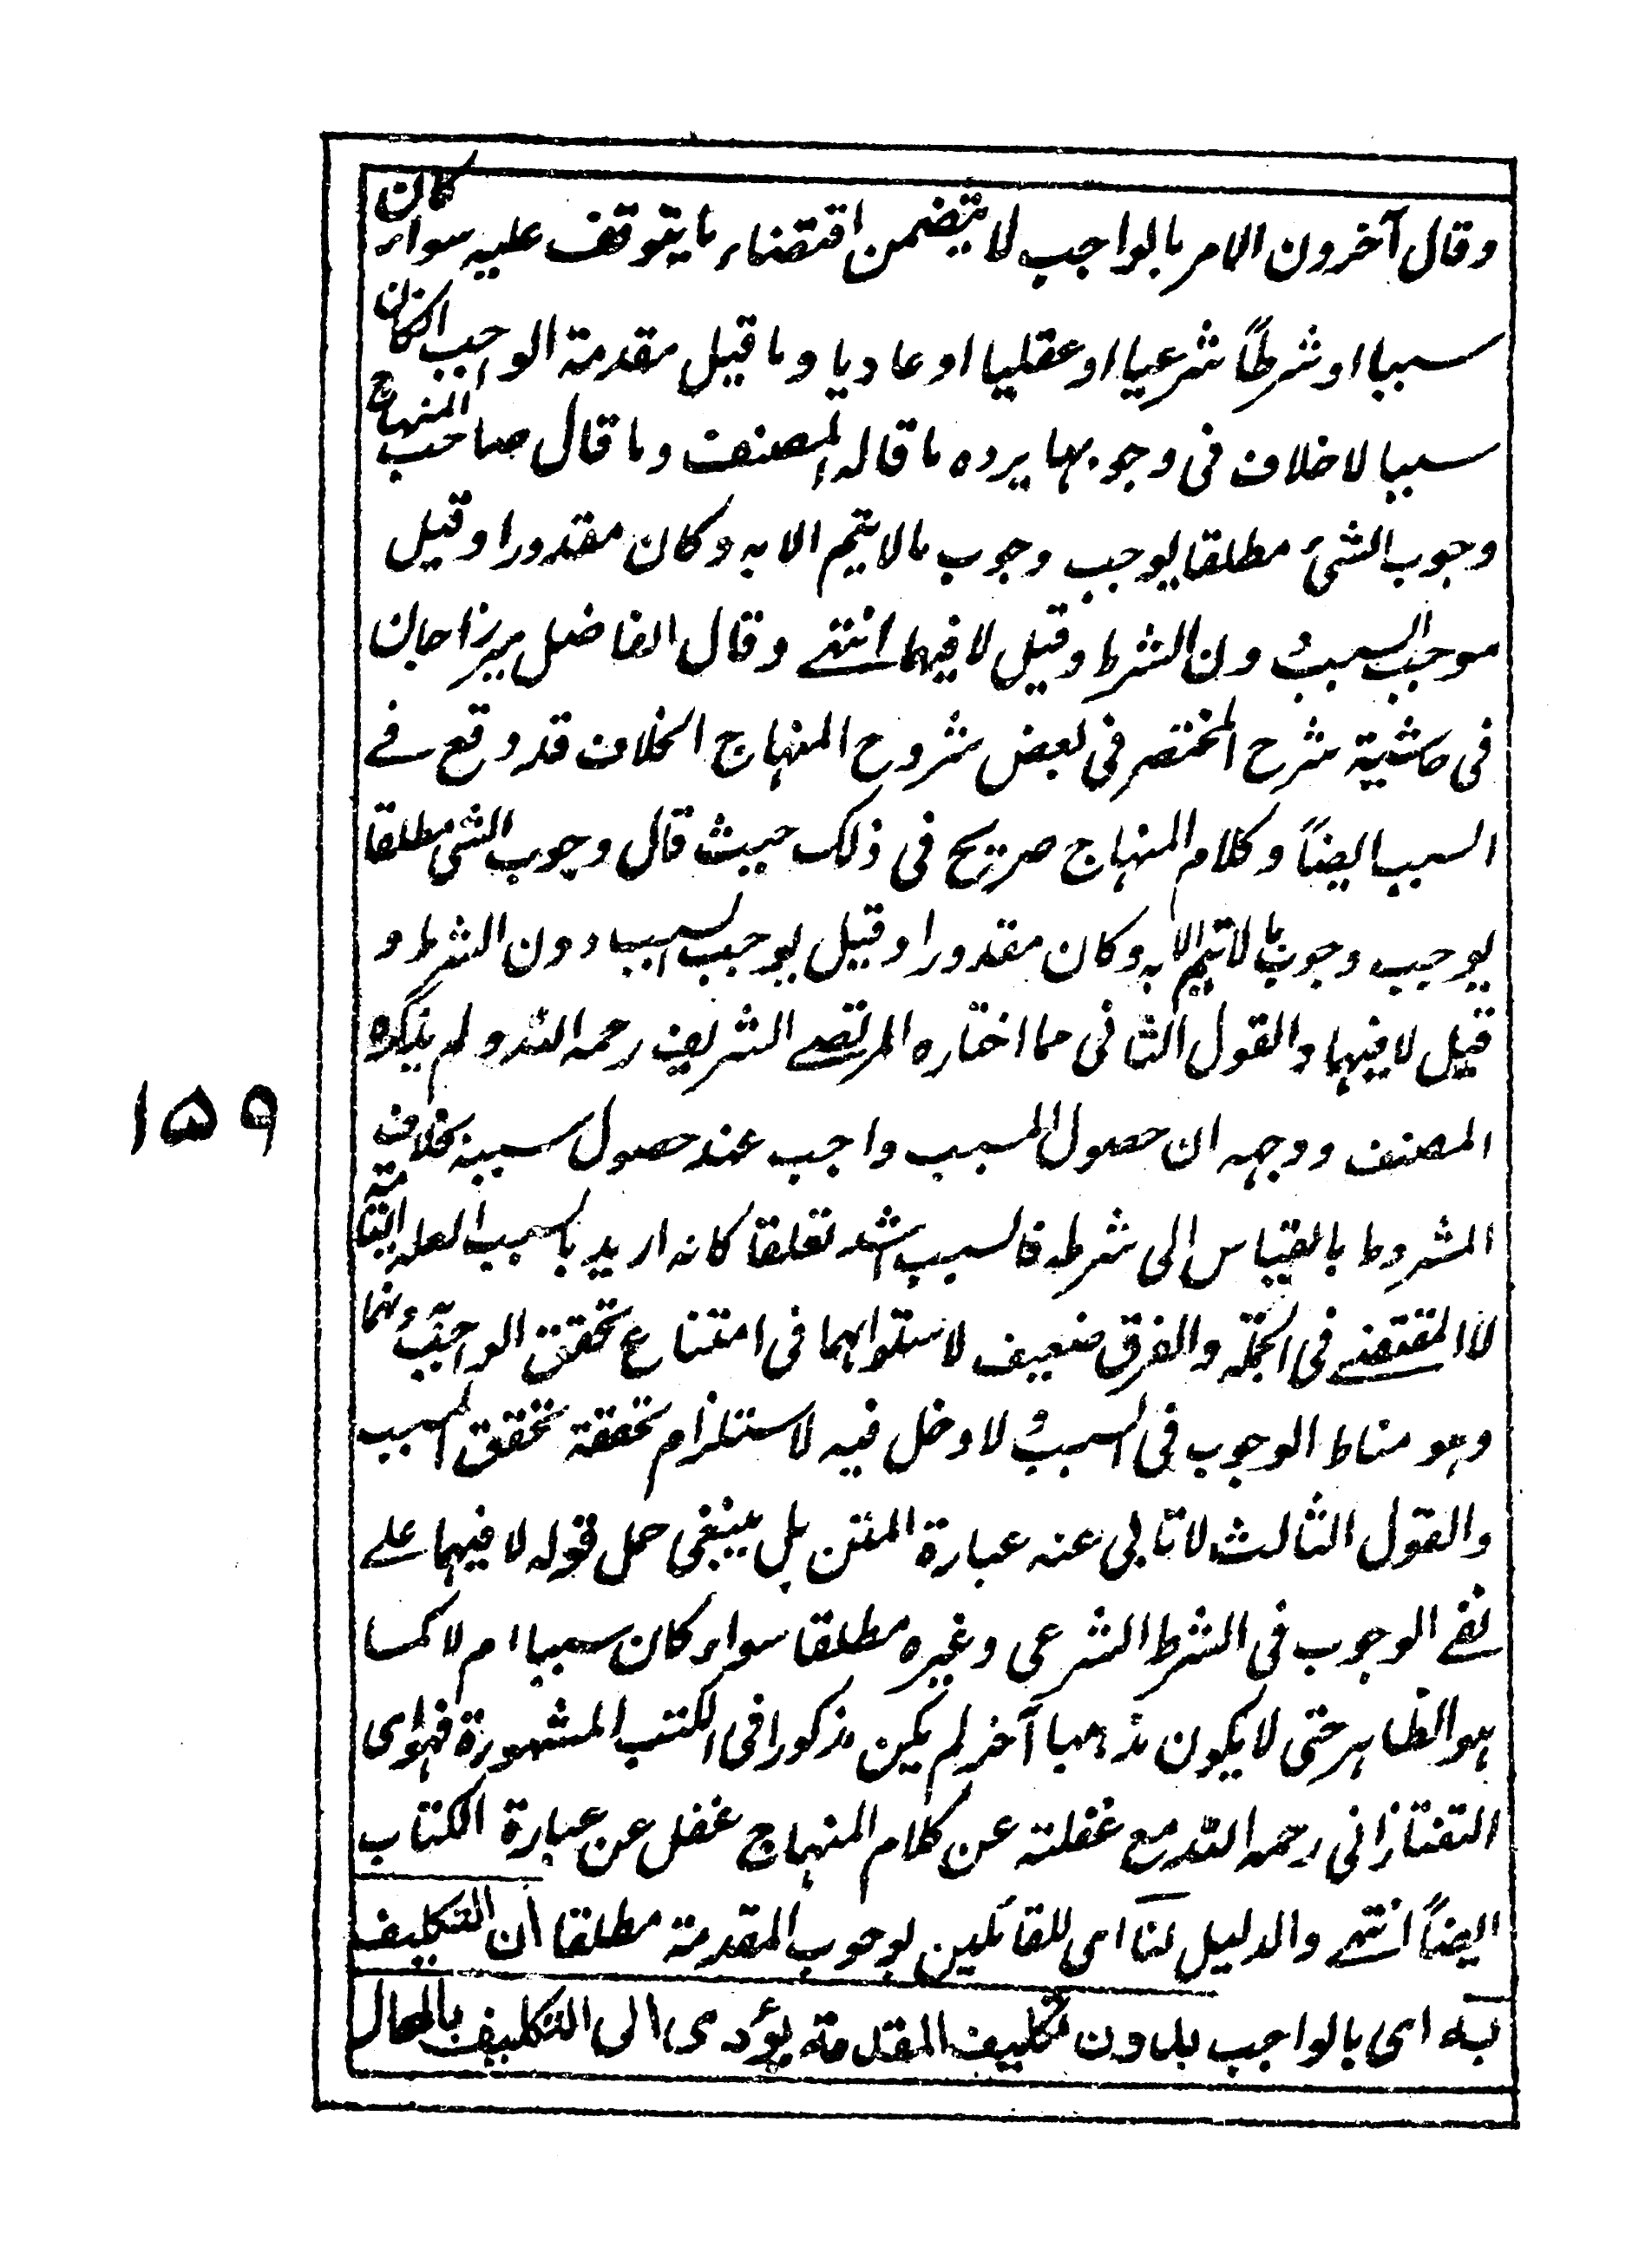 وقال آخرون الامر بالواجب لا يتضمن اقتضاء ما يتوقف عليه سواء كان
سببا او شرطاً شرعيا او عقليا او عاديا وما قيل مقدمة الواجب ان كان
سببا لا خلاف فى وجوبها يرده ما قاله المصنف وما قال صاحب المنهاج
وجوب الشئ مطلقا يوجب وجوب ما لا يتم الا به وكان مقدورا وقيل
يوجب السبب دون الشرط وقيل لا فيهما انتهے وقال الفاضل ميرزا جان
فى حاشية شرح المختصر فى بعض شروح المنهاج الخلاف قد وقع فے
السبب ايضاً وكلام المنهاج صريح فى ذلك حيث قال وجوب الشئ مطلقا
يوجب وجوب ما لا يتم الا به وكان مقدورا وقيل يوجب السبب دون الشرط و
قيل لا فيهما والقول الثانى مما اختاره المرتضے الشريف رحمه الله ولم يذكره
المصنف ووجهه ان حصول المسبب واجب عند حصول سببه بخلاف
المشروط بالقياس الى شرطه فالسبب اشد تعلقا كانه اريد بالسبب العلة التامة
لا المقتضے فى الجملة والفرق ضعيف لاستوائهما فى امتناع تحقق الواجب بدونهما
وهو مناط الوجوب فى السبب ولا دخل فيه لاستلزام تحققه تحقق المسبب
والقول الثالث لا تابى عنه عبارة المتن بل ينبغى حمل قوله لا فيهما علے
نفے الوجوب فى الشرط الشرعى وغيره مطلقا سواء كان سببا ام لا كما
هو الظاهر حتى لا يكون مذهبا آخر لم يكن مذكورا فى الكتب المشهورة فهو اى
التفتازانى رحمه الله مع غفلته عن كلام المنهاج غفل عن عبارة الكتاب
ايضاً انتهے والدليل لنا اى للقائلين بوجوب المقدمة مطلقا ان التكليف
به اى بالواجب بدون تكليف المقدمة يؤدى الى التكليف بالمحال
۱۵۹